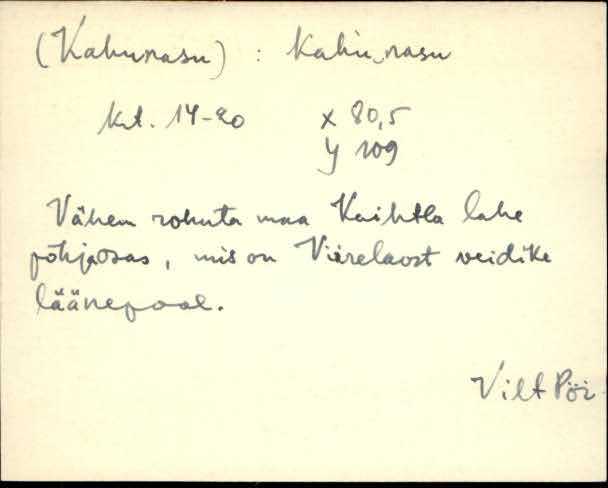 (Kahunasu) : Kahu_nasu
krt. 14-20 x 80,5
y 109
Vähem rohuta maa Kaihtla lahe
põhjaosas, mis on Viirelaost veidike
läänepool.
Vilt Pöi